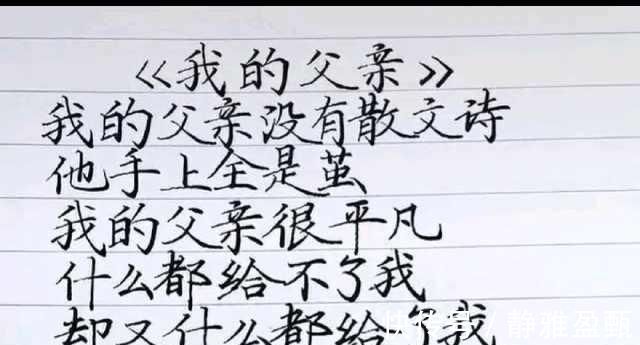 《我的父亲》
我的父亲没有散文诗
他手上全是茧
我的父亲很平凡
什么都给不了我
却又什么都给了我
快传号 / 静雅盈甄